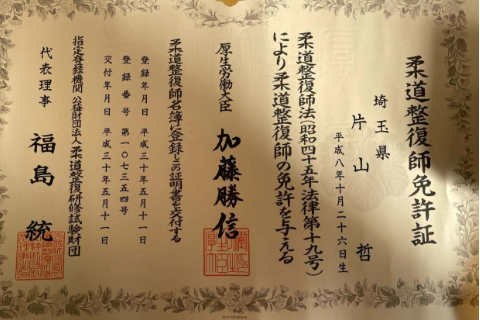 柔道整復師免許証
埼玉県
片山 哲
平成八年十月二十六日生
柔道整復師法(昭和四十五年法律第十九号)
により柔道整復師の免許を与える
厚生労働大臣 加藤勝信
柔道整復師名簿に登録しこの証明書を交付する
登録年月日 平成三十年五月十一日
登録番号 第一〇七三五四号
交付年月日 平成三十年五月十一日
指定登録機関 公益財団法人柔道整復研修試験財団
代表理事 福島 統